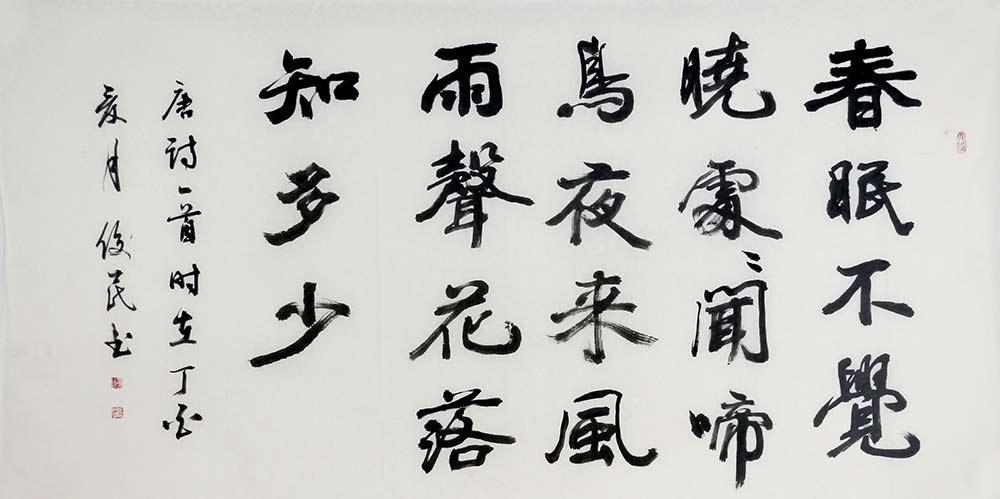 春眠不覺
曉處〻聞啼
鳥夜来風
雨聲花落
知多少
唐詩一首时在丁酉
夏月俊民书